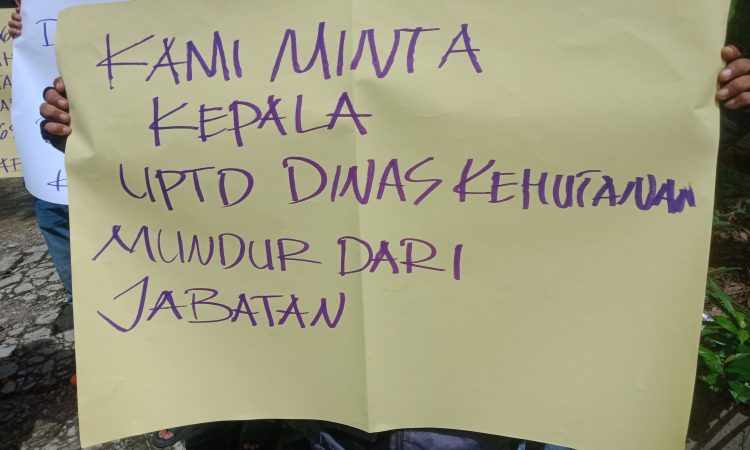 KAMI MINTA
KEPALA
UPTD DINAS KEHUTANAN
MUNDUR DARI
JABATAN